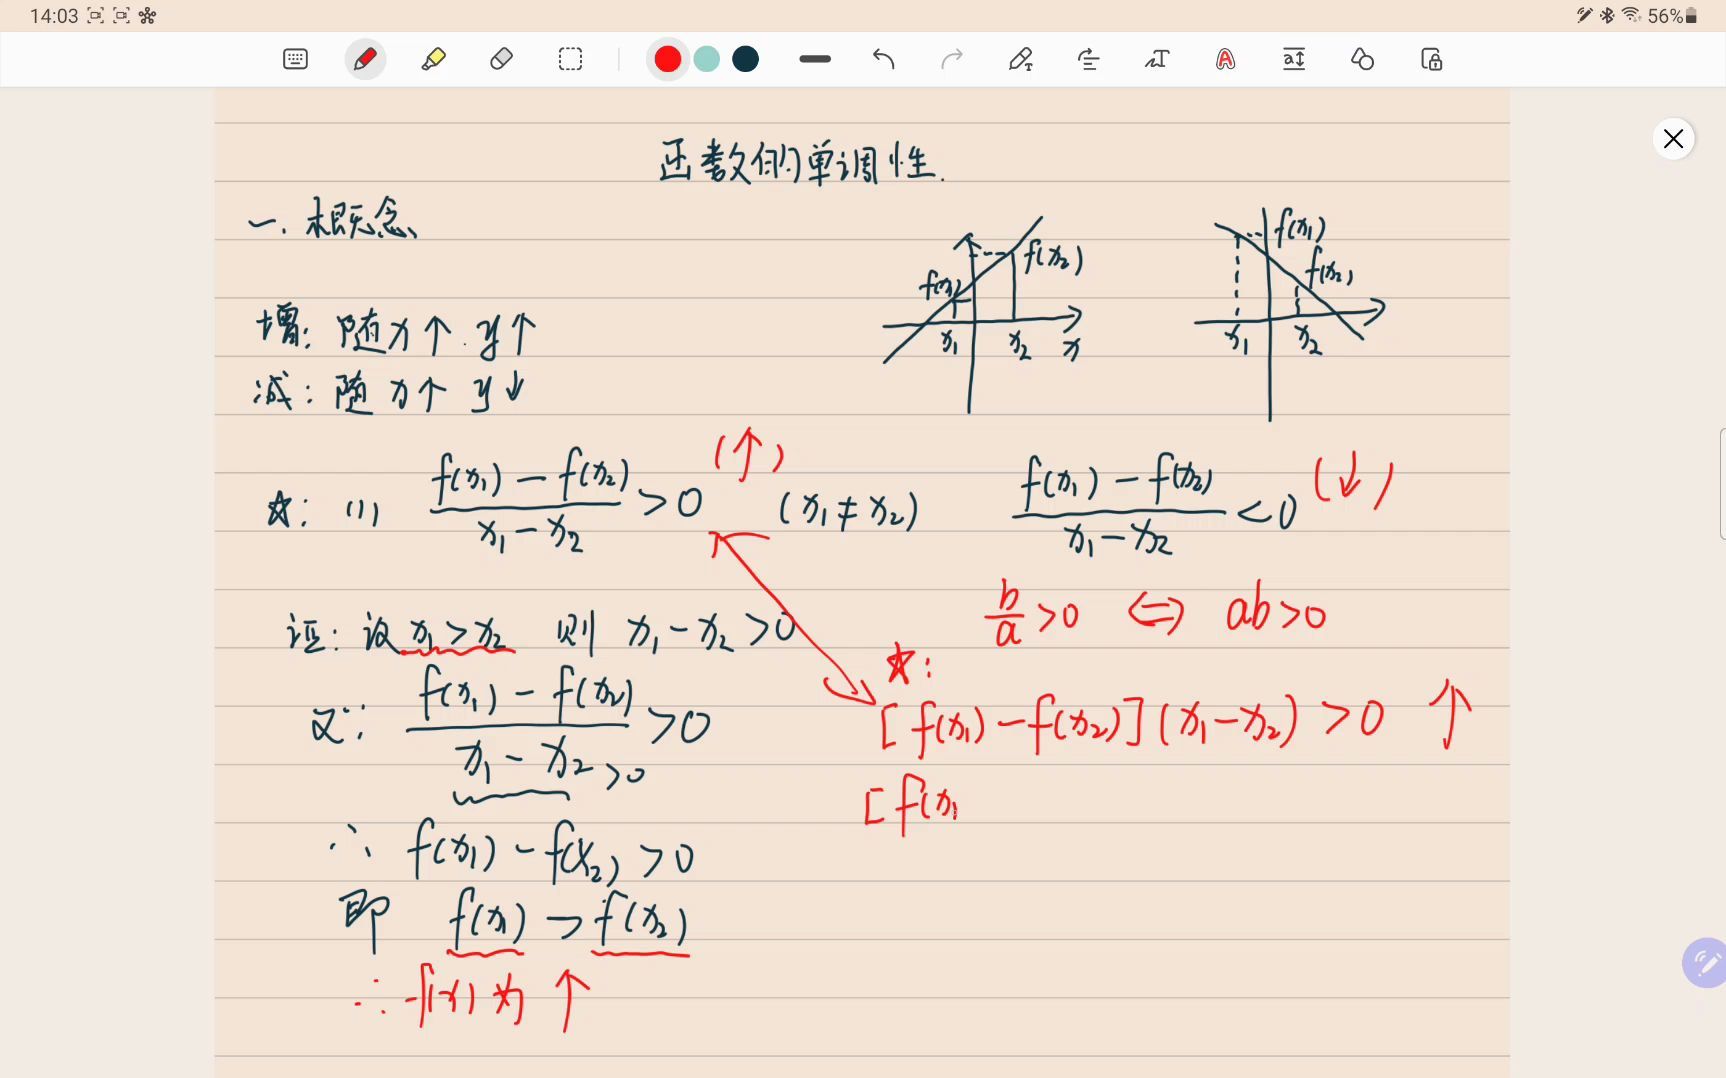 14:03
56%
函数的单调性.
一. 概念
f(x₁) f(x₂) x₁ x₂ x
f(x₁) f(x₂) x₁ x₂
增: 随 x↑ y↑
减: 随 x↑ y↓
☆: (1) (f(x₁) - f(x₂))/(x₁ - x₂) > 0 (↑) (x₁ ≠ x₂) (f(x₁) - f(x₂))/(x₁ - x₂) < 0 (↓)
b/a > 0 ⇔ ab > 0
证: 设 x₁ > x₂ 则 x₁ - x₂ > 0
☆:
[f(x₁) - f(x₂)](x₁ - x₂) > 0 ↑
又∵ (f(x₁) - f(x₂))/(x₁ - x₂) > 0
>0
[f(x₁
∴ f(x₁) - f(x₂) > 0
即 f(x₁) > f(x₂)
∴ f(x) 为 ↑